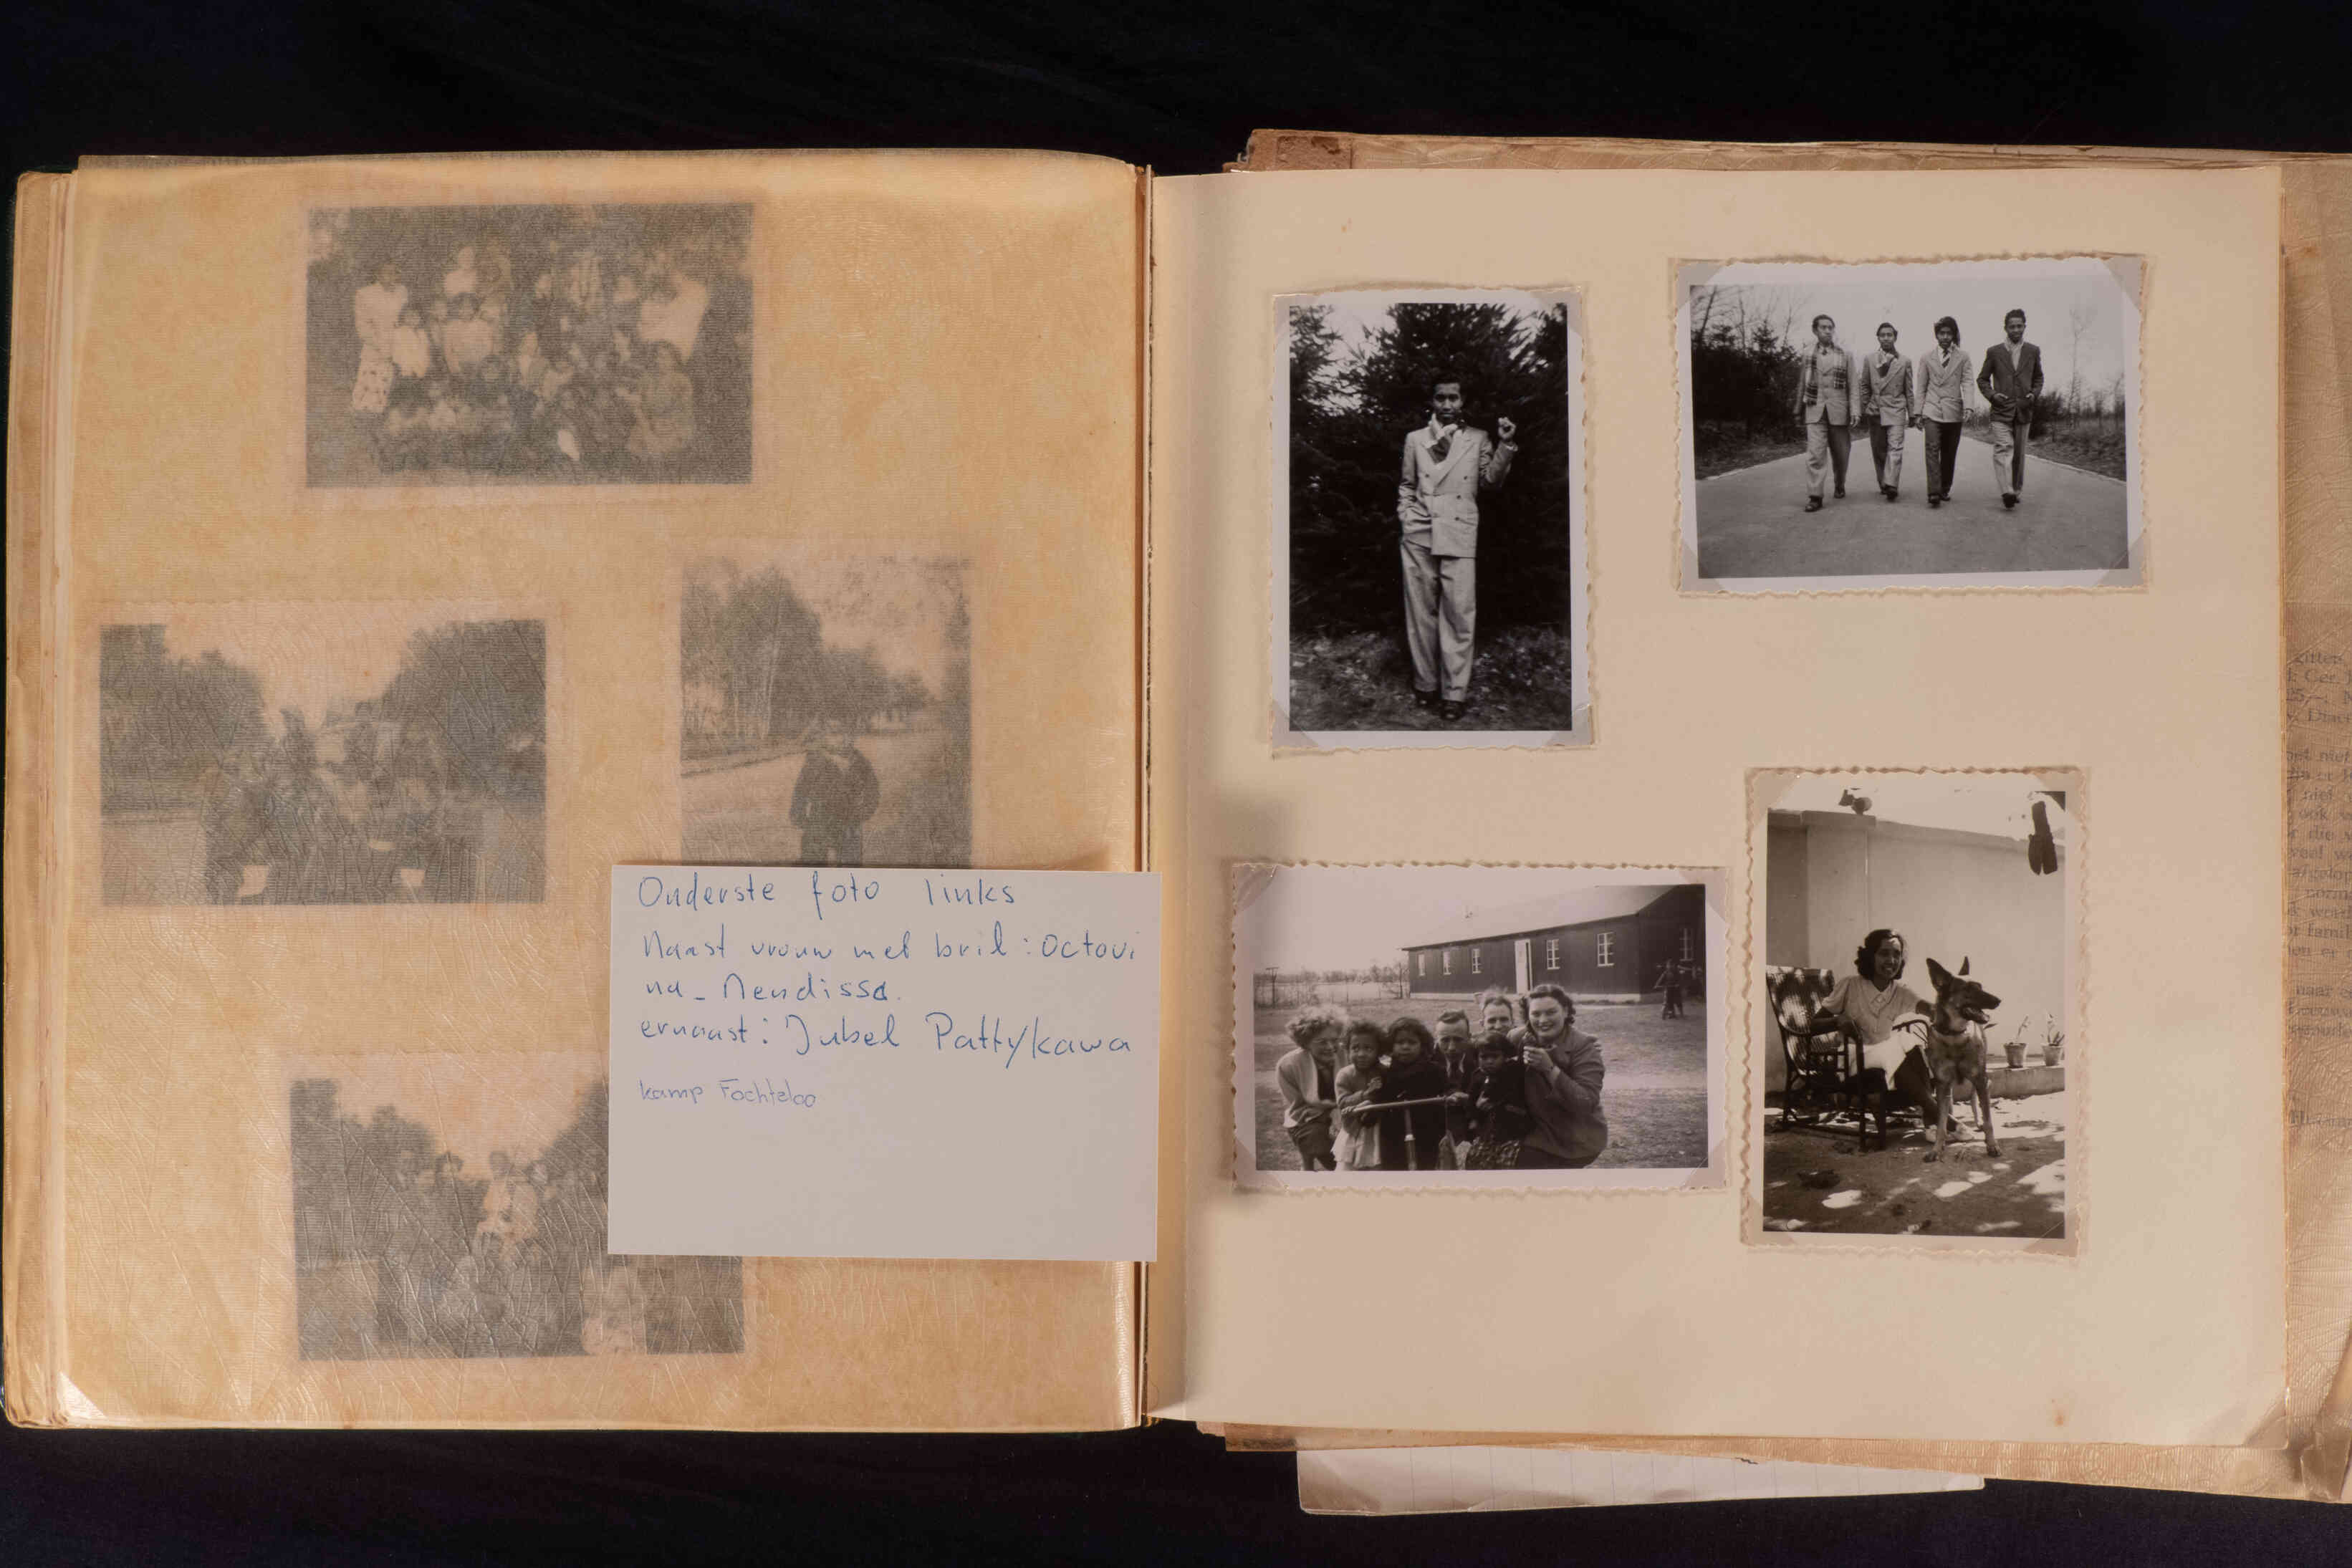 Onderste foto links
Naast vrouw met bril: Octovi
na_ Nendissa.
ernaast: Jubel Pattykawa
kamp Fochteloo
zitter
niet
ook
die
naar